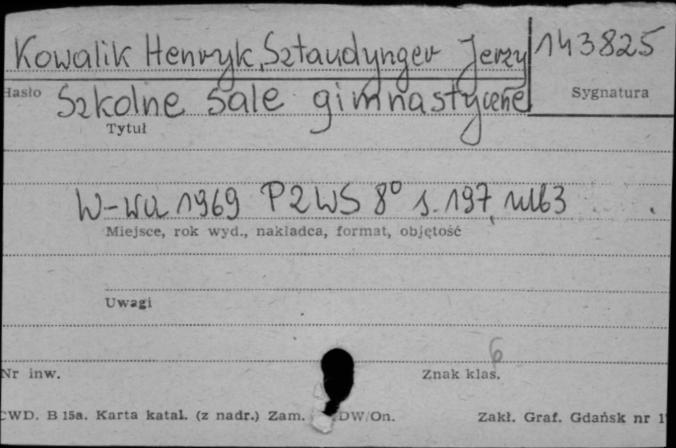 Kowalik Henryk, Sztaudynger Jerzy 143825
Hasło Sygnatura
Szkolne sale gimnastyczne
Tytuł
W-wa 1969 PZWS 8° s. 197, nlb 3
Miejsce, rok wyd., nakładca, format, objętość
Uwagi
6
Nr inw. Znak klas.
CWD. B 15a. Karta katal. (z nadr.) Zam. DW/On. Zakł. Graf. Gdańsk nr 1